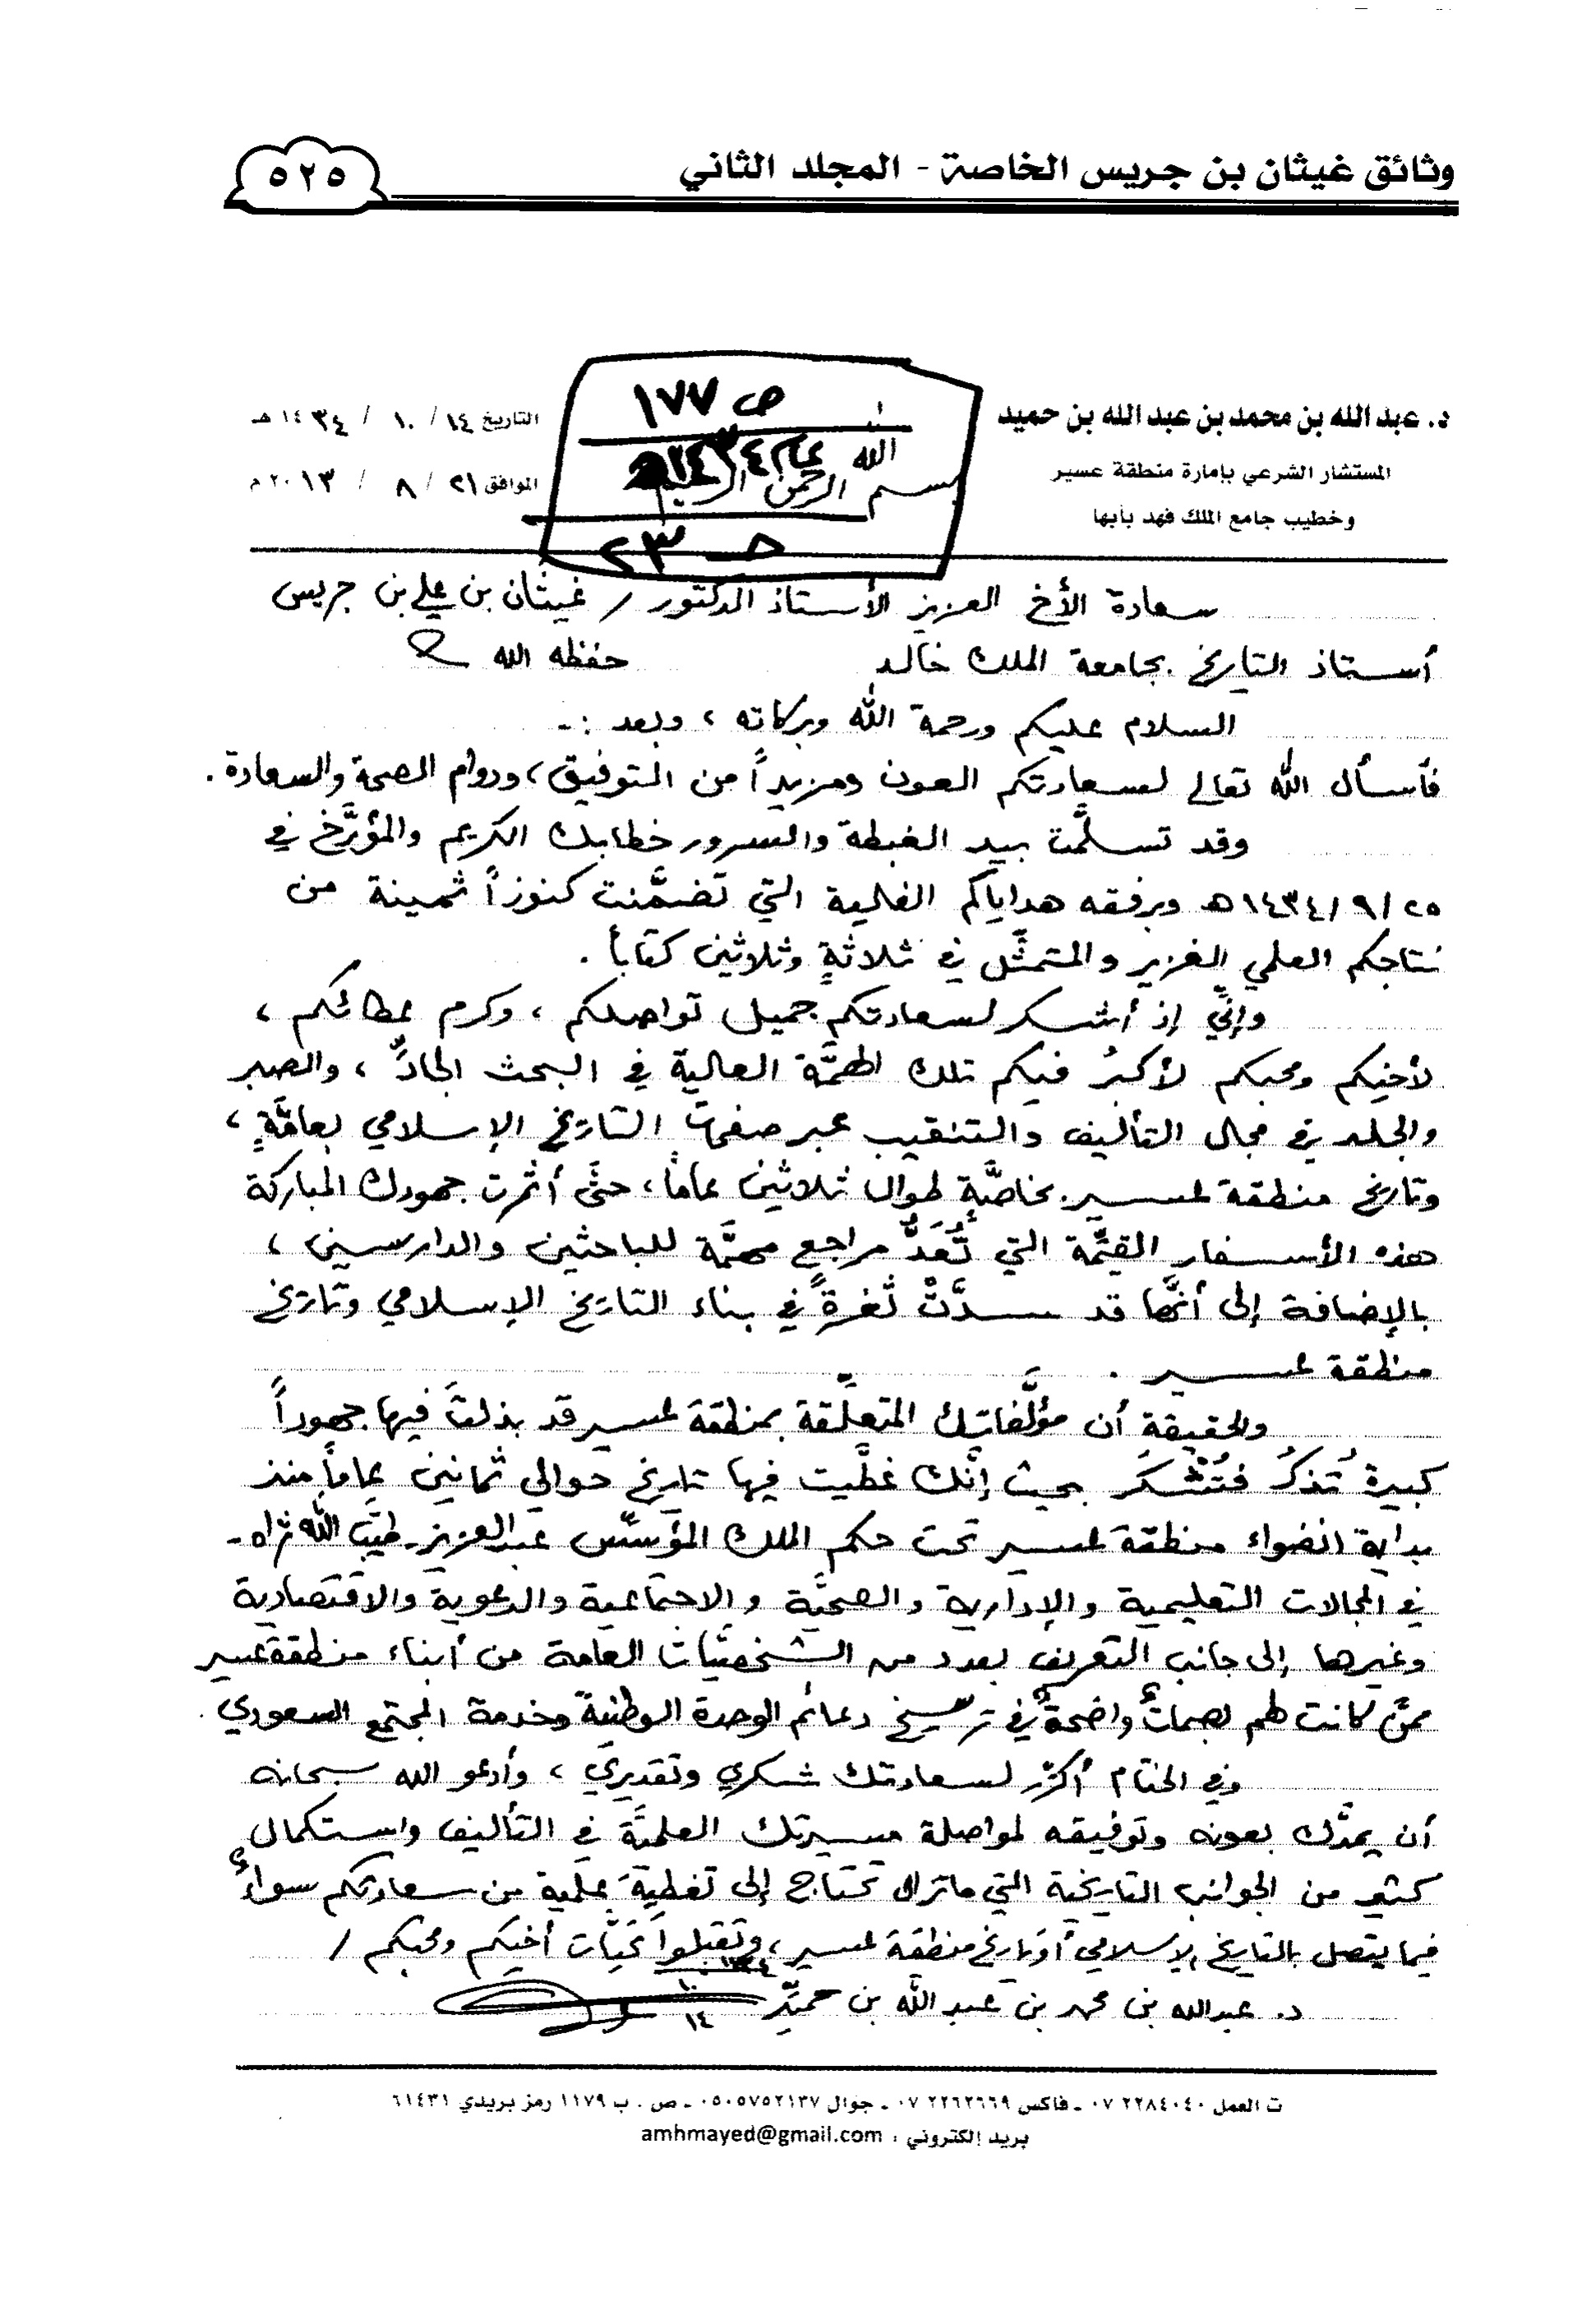 وثائق غيثان بن جريس الخاصة - المجلد الثاني
٥٢٥
د. عبد الله بن محمد بن عبد الله بن حميد
المستشار الشرعي بإمارة منطقة عسير
وخطيب جامع الملك فهد بأبها
ص ١٧٧
عام ١٤٣٤هـ
بسم الله الرحمن الرحيم
حـ ٢٣
التاريخ ١٤ / ١٠ / ١٤٣٤هـ
الموافق ٢١ / ٨ / ٢٠١٣م
سعادة الأخ العزيز الأستاذ الدكتور / غيثان بن علي بن جريس
أستاذ التاريخ بجامعة الملك خالد حفظه الله
السلام عليكم ورحمة الله وبركاته ، وبعد :-
فأسأل الله تعالى لسعادتكم العون ومزيداً من التوفيق ، ودوام الصحة والسعادة .
وقد تسلَّمت بيد الغبطة والسرور خطابك الكريم والمؤرَّخ في
٢٥/٩/١٤٣٤هـ وبرفقه هداياكم الغالية التي تضمَّنت كنوزاً ثمينة من
نتاجكم العلمي الغزير والمتمثِّل في ثلاثةٍ وثلاثين كتاباً .
وإنِّي إذ أشكر لسعادتكم جميل تواصلكم ، وكرم عطائكم ،
لأخيكم ومحبكم لأكبرُ فيكم تلك الهمَّة العالية في البحث الجادِّ ، والصبر
والجلد في مجال التأليف والتنقيب عبر صفحات التاريخ الإسلامي بعامَّةٍ ،
وتاريخ منطقة عسير بخاصَّةٍ طوال ثلاثين عاماً ، حتَّى أثمرت جهودك المباركة
هذه الأسفار القيِّمة التي تُعَدُّ مراجع مهمَّة للباحثين والدارسين ،
بالإضافة إلى أنَّها قد سدَّتْ ثغرةً في بناء التاريخ الإسلامي وتاريخ
منطقة عسير .
والحقيقة أن مؤلَّفاتِك المتعلِّقة بمنطقة عسير قد بذلتَ فيها جهوداً
كبيرة تُذكرُ فتُشْكَرُ بحيث إنَّك غطَّيت فيها تاريخ حوالي ثمانين عاماً منذ
بداية انضواء منطقة عسير تحت حكم الملك المؤسِّس عبدالعزيز - طيَّب الله ثراه -
في المجالات التعليمية والإدارية والصحيَّة والاجتماعية والدعوية والاقتصادية
وغيرها إلى جانب التعريف بعدد من الشخصيَّات العامة من أبناء منطقة عسير
ممَّن كانت لهم بصماتٌ واضحةٌ في ترسيخ دعائم الوحدة الوطنيَّة وخدمة المجتمع السعودي .
وفي الختام أكرِّر لسعادتك شكري وتقديري ، وأدعو الله سبحانه
أن يمدَّك بعونه وتوفيقه لمواصلة مسيرتك العلميَّة في التأليف واستكمال
كثير من الجوانب التاريخية التي ماتزال تحتاج إلى تغطية علمية من سعادتكم سواءٌ
فيما يتصل بالتاريخ الإسلامي أو تاريخ منطقة عسير ، وتقبلوا تحيَّات أخيكم ومحبكم /
د. عبدالله بن محمد بن عبدالله بن حميِّد ١٤ / ١٠ / ١٤٣٤
ت العمل ٢٢٨٤٠٤٠ ٠٧ - فاكس ٢٢٦٢٦٦٩ ٠٧ - جوال ٠٥٠٥٧٥٢١٣٧ - ص . ب ١١٧٩ رمز بريدي ٦١٤٣١
بريد إلكتروني : amhmayed@gmail.com